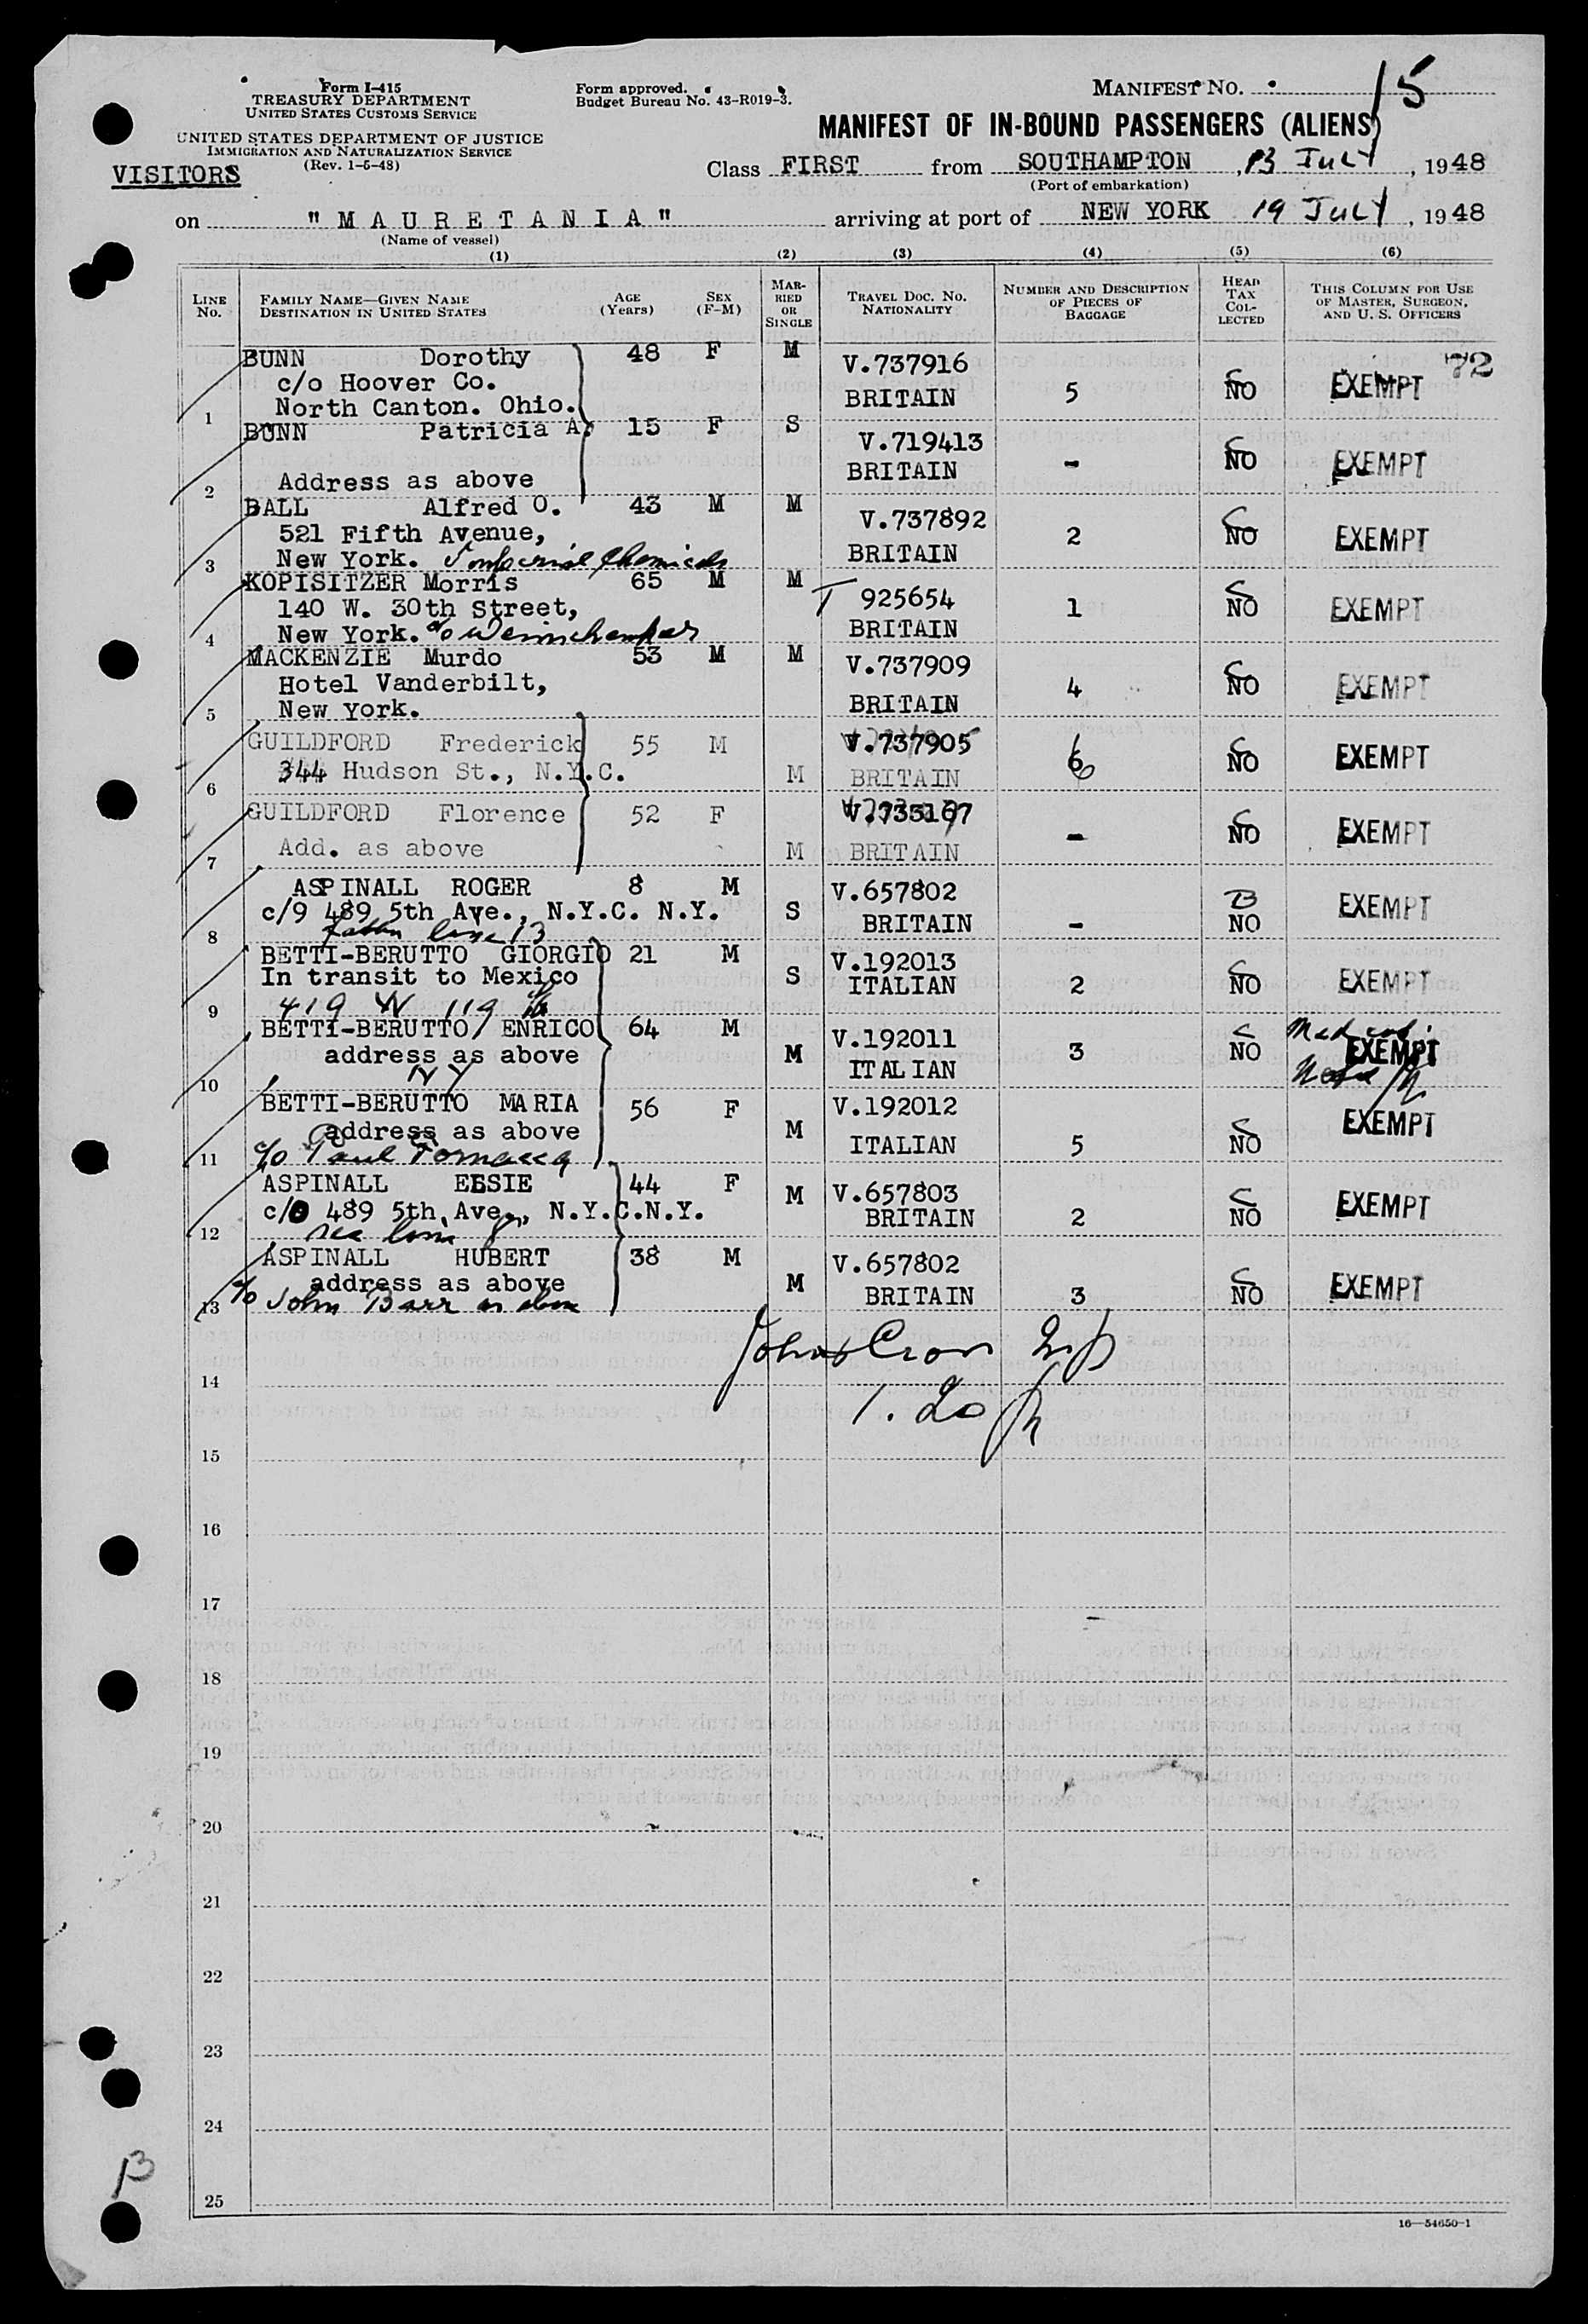 Form I-415
TREASURY DEPARTMENT
UNITED STATES CUSTOMS SERVICE
UNITED STATES DEPARTMENT OF JUSTICE
IMMIGRATION AND NATURALIZATION SERVICE
(Rev. 1-5-48)
VISITORS
Form approved.
Budget Bureau No. 43-R019-3.
MANIFEST NO. 15
MANIFEST OF IN-BOUND PASSENGERS (ALIENS)
Class FIRST from SOUTHAMPTON, 13 JULY, 1948
(Port of embarkation)
on "MAURETANIA" arriving at port of NEW YORK 19 JULY, 1948
(Name of vessel)
(1) (2) (3) (4) (5) (6)
LINE No. FAMILY NAME—GIVEN NAME DESTINATION IN UNITED STATES AGE (Years) SEX (F-M) MARRIED OR SINGLE TRAVEL DOC. NO. NATIONALITY NUMBER AND DESCRIPTION OF PIECES OF BAGGAGE HEAD TAX COLLECTED THIS COLUMN FOR USE OF MASTER, SURGEON, AND U. S. OFFICERS
72
BUNN Dorothy 48 F M V.737916
c/o Hoover Co. BRITAIN 5 NO EXEMPT
1 North Canton. Ohio.
BUNN Patricia A. 15 F S V.719413
2 Address as above BRITAIN - NO EXEMPT
BALL Alfred O. 43 M M V.737892
521 Fifth Avenue, BRITAIN 2 NO EXEMPT
3 New York. Imperial Chemicals
KOPISITZER Morris 65 M M T 925654
140 W. 30th Street, BRITAIN 1 NO EXEMPT
4 New York. c/o
MACKENZIE Murdo 53 M M V.737909
Hotel Vanderbilt, BRITAIN 4 NO EXEMPT
5 New York.
GUILDFORD Frederick 55 M V.737905
6 344 Hudson St., N.Y.C. M BRITAIN 6 NO EXEMPT
GUILDFORD Florence 52 F V.735167
7 Add. as above M BRITAIN - NO EXEMPT
ASPINALL ROGER 8 M V.657802
c/9 489 5th Ave., N.Y.C. N.Y. S BRITAIN - NO EXEMPT
8 father line 13
BETTI-BERUTTO GIORGIO 21 M V.192013
In transit to Mexico S ITALIAN 2 NO EXEMPT
9 419 W 119
BETTI-BERUTTO ENRICO 64 M V.192011
address as above M ITALIAN 3 NO EXEMPT
10 NY
BETTI-BERUTTO MARIA 56 F V.192012
address as above M ITALIAN 5 NO EXEMPT
11 c/o Paul
ASPINALL ELSIE 44 F M V.657803
c/o 489 5th Ave., N.Y.C.N.Y. BRITAIN 2 NO EXEMPT
12 see line 8
ASPINALL HUBERT 38 M V.657802
address as above M BRITAIN 3 NO EXEMPT
13 c/o John Barr as above
14
15
16
17
18
19
20
21
22
23
24
25
16—54650-1